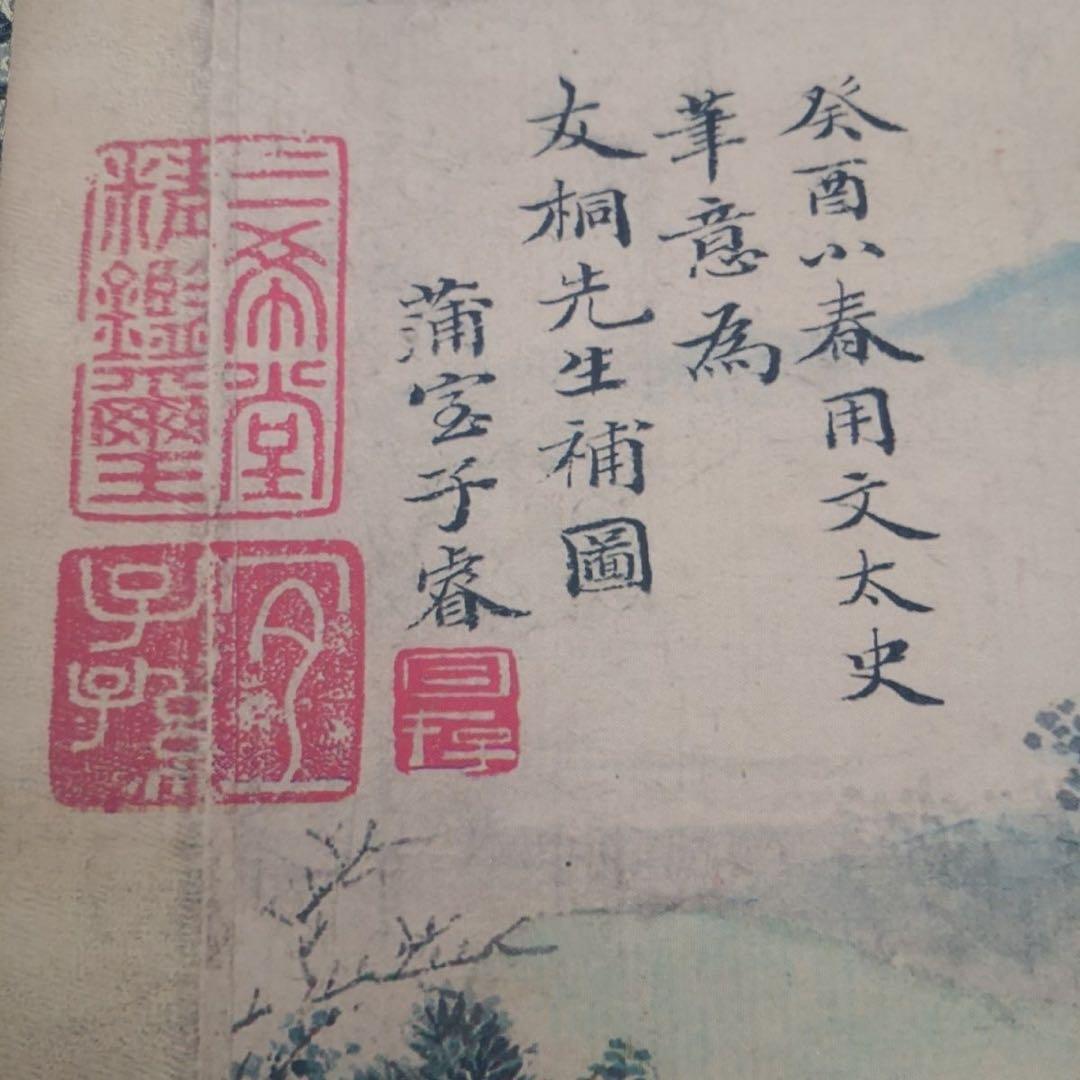 癸酉小春用文太史
筆意為
友桐先生補圖
蒲室子睿
三希堂
精鑑璽
宜
子孫